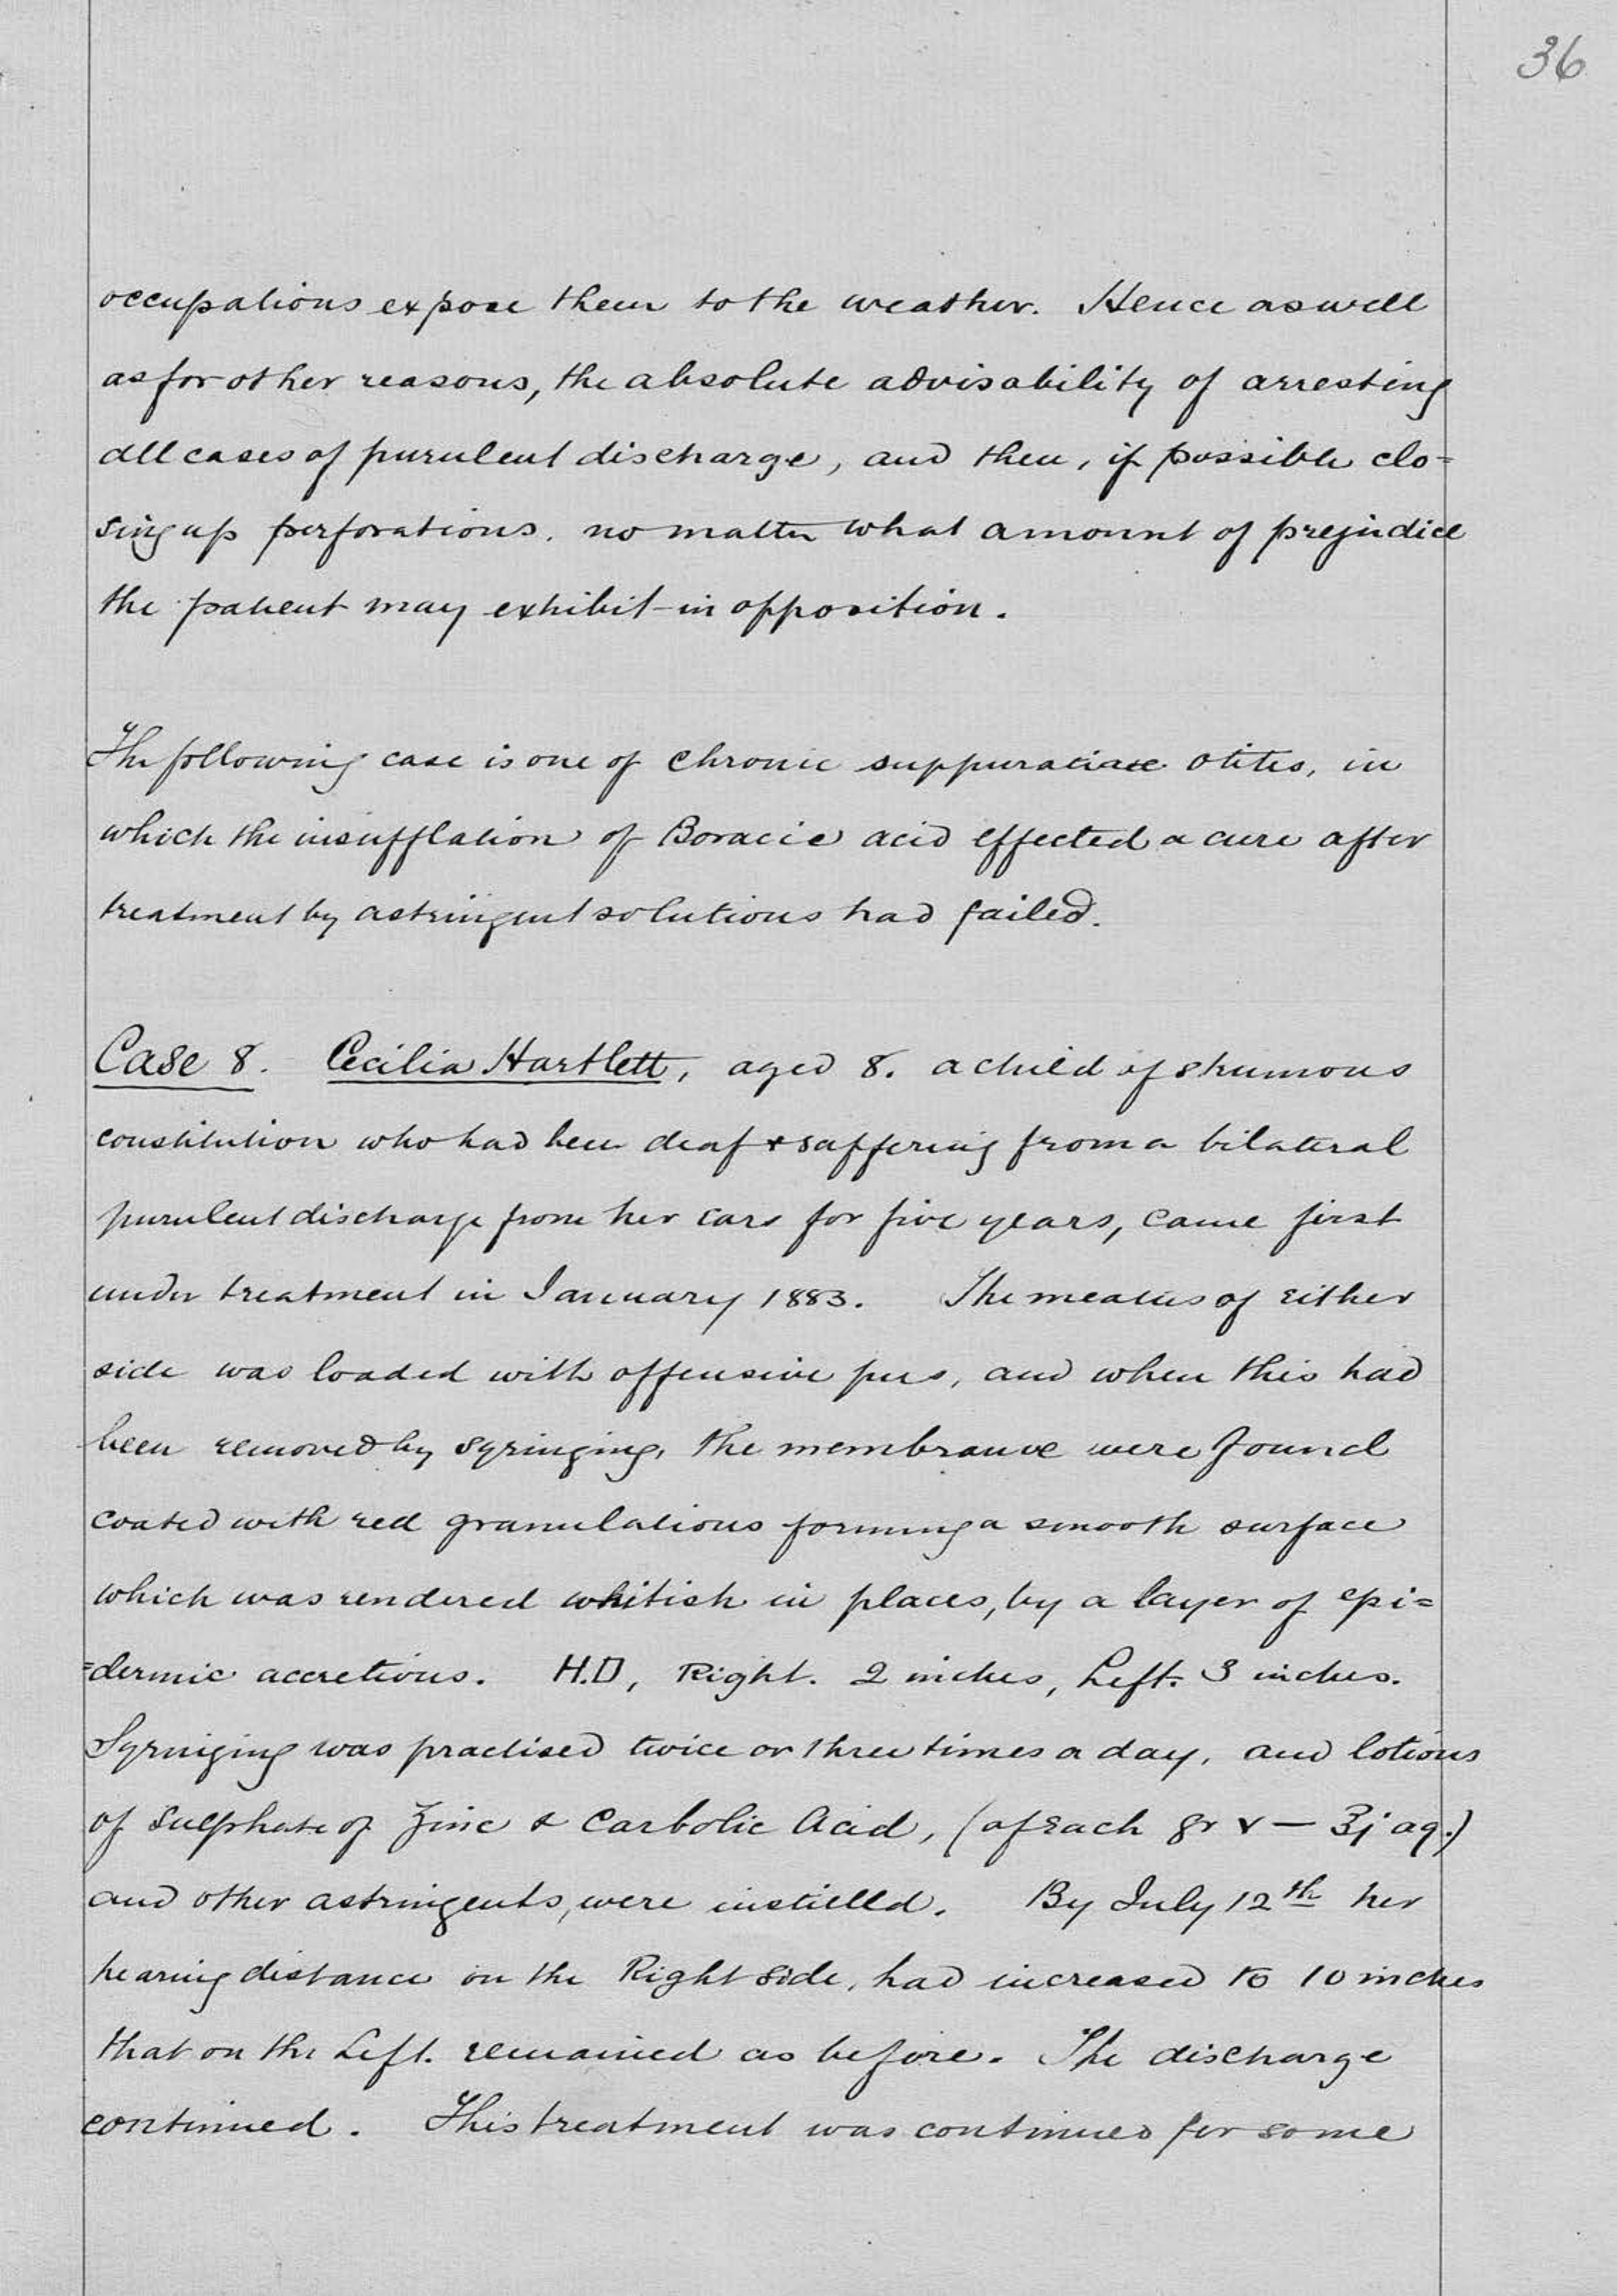 36
occupations expose them to the weather. Hence as well
as for other reasons, the absolute advisability of arresting
all cases of purulent discharge, and then, if possible clo=
sing up perforations. no matter what amount of prejudice
the patient may exhibit in opposition.
The following case is one of chronic suppurative otitis, in
which the insufflation of Boracic acid effected a cure after
treatment by astringent solutions had failed.
Case 8. Cecilia Hartlett, aged 8. a child of strumous
constitution who had been deaf & suffering from a bilateral
purulent discharge from her ears for five years, came first
under treatment in January 1883. The meatus of either
side was loaded with offensive pus, and when this had
been removed by syringing, the membranæ were found
coated with red granulations forming a smooth surface
which was rendered whitish in places, by a layer of epi=
=dermic accretions. H.D, Right. 2 inches, Left. 3 inches.
Syringing was practised twice or three times a day, and lotions
of Sulphate of Zinc & Carbolic Acid, (of each gr v — ℥j aq.)
and other astringents, were instilled. By July 12th her
hearing distance on the Right side, had increased to 10 inches
that on the Left. remained as before. The discharge
continued. This treatment was continued for some